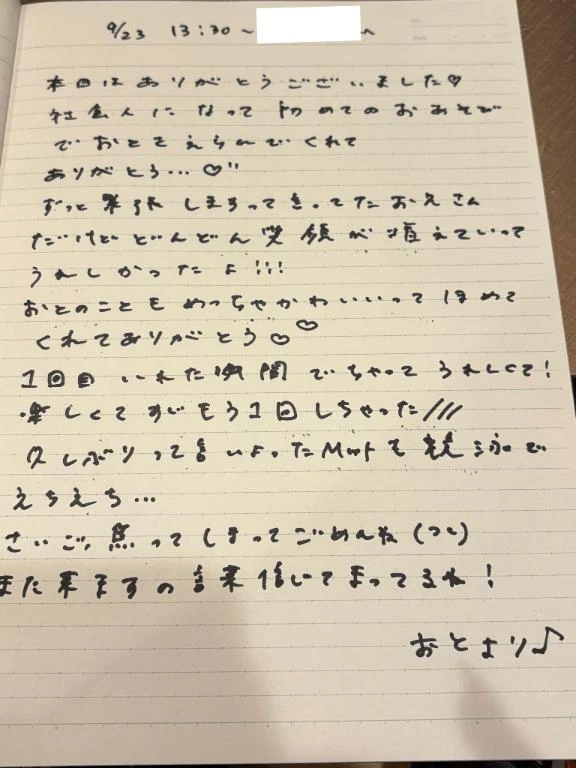 9/23 13:30～ へ
本日はありがとうございました♡
社会人になって初めてのおあそび
でおとをえらんでくれて
ありがとう…♡
ずっと緊張しますってきってたお兄さん
だけどどんどん笑顔が増えていって
うれしかったよ!!!
おとのこともめっちゃかわいいってほめて
くれてありがとう♡♡
1回目いれた瞬間でちゃってうれしくて!
楽しくてすぐもう1回しちゃった///
久しぶりって言いよったMattも競泳で
えちえち…
さいご、焦ってしまってごめんね
また来ますの言葉信じてまってるね!
おとより♪